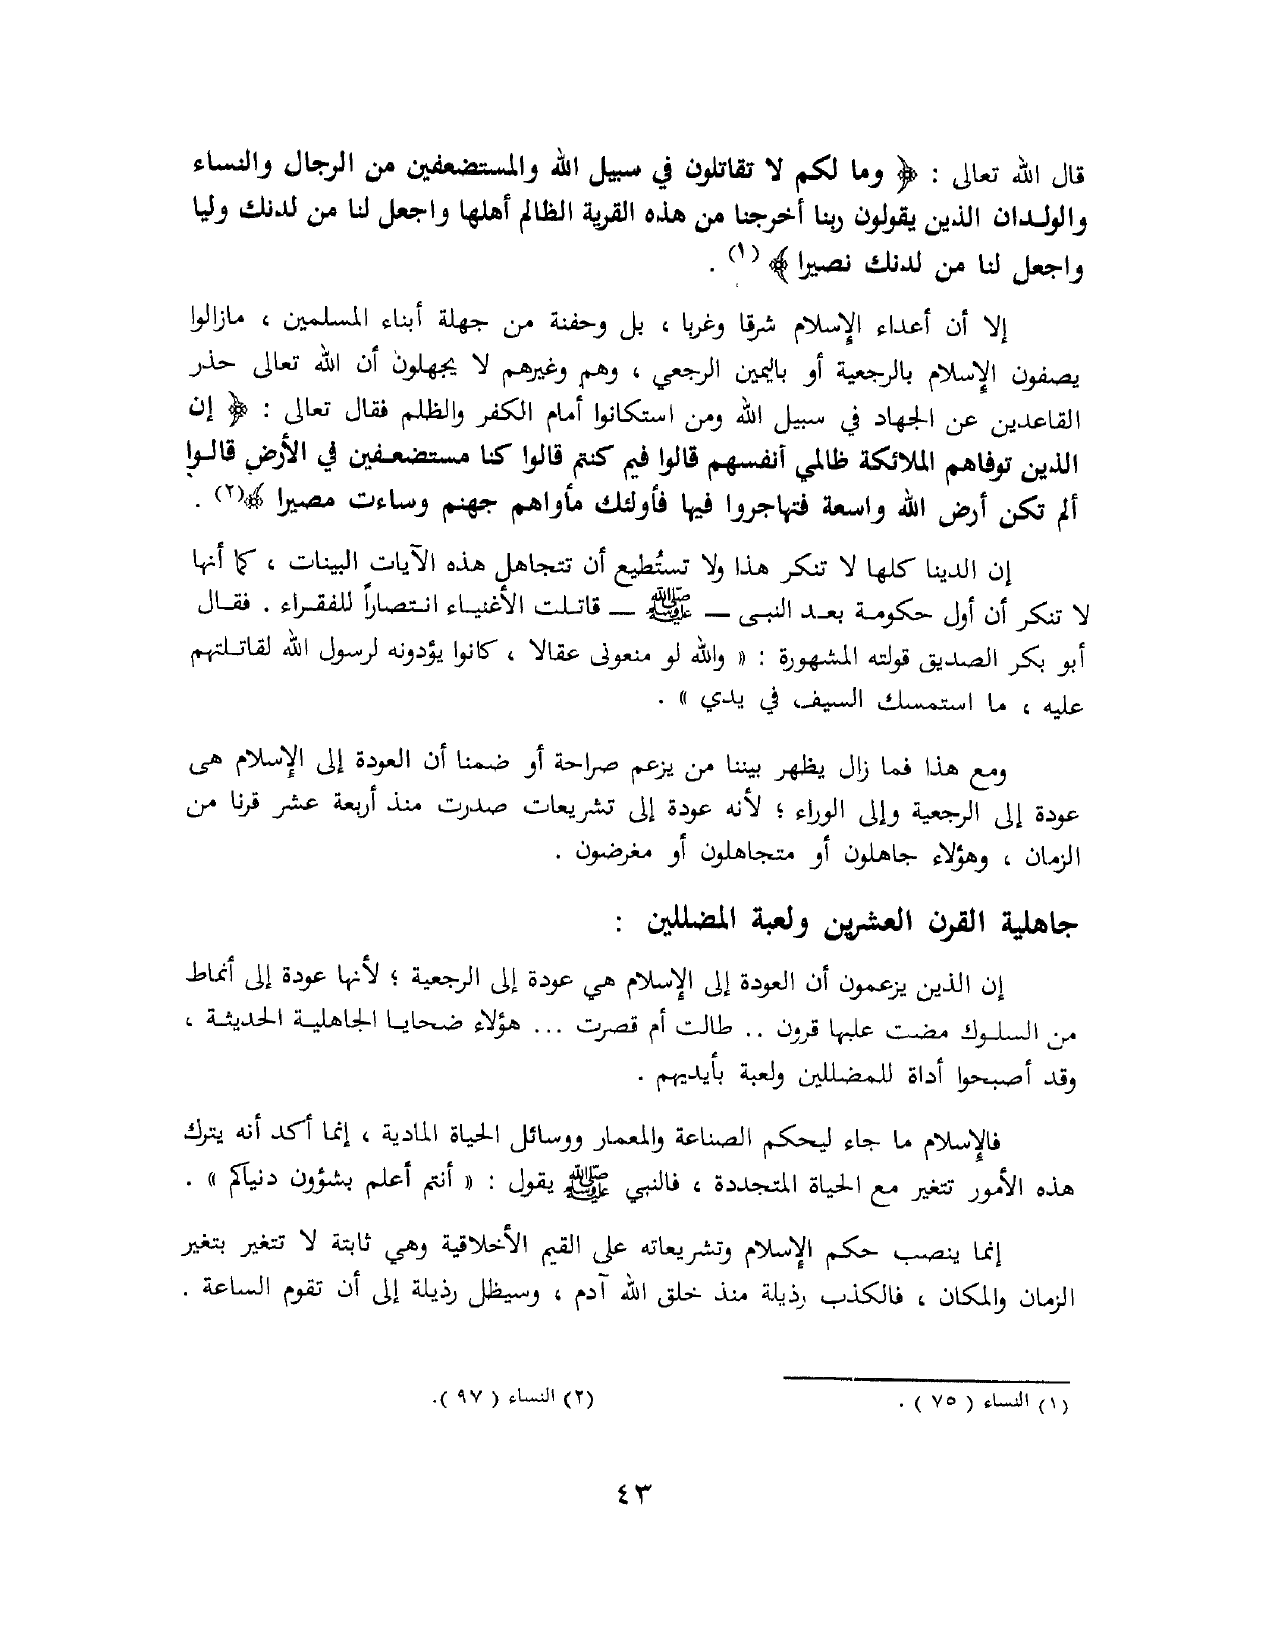 قال الله تعالى : ﴿ وما لكم لا تقاتلون في سبيل الله والمستضعفين من الرجال والنساء
والولدان الذين يقولون ربنا أخرجنا من هذه القرية الظالم أهلها واجعل لنا من لدنك وليا
واجعل لنا من لدنك نصيرا ﴾ (١) .
إلا أن أعداء الإسلام شرقا وغربا ، بل وحفنة من جهلة أبناء المسلمين ، مازالوا
يصفون الإسلام بالرجعية أو باليمين الرجعي ، وهم وغيرهم لا يجهلون أن الله تعالى حذر
القاعدين عن الجهاد في سبيل الله ومن استكانوا أمام الكفر والظلم فقال تعالى : ﴿ إن
الذين توفاهم الملائكة ظالمي أنفسهم قالوا فيم كنتم قالوا كنا مستضعفين في الأرض قالوا
ألم تكن أرض الله واسعة فتهاجروا فيها فأولئك مأواهم جهنم وساءت مصيرا ﴾(٢) .
إن الدينا كلها لا تنكر هذا ولا تستطيع أن تتجاهل هذه الآيات البينات ، كما أنها
لا تنكر أن أول حكومة بعد النبى — ﷺ — قاتلت الأغنياء انتصاراً للفقراء . فقال
أبو بكر الصديق قولته المشهورة : « والله لو منعونى عقالا ، كانوا يؤدونه لرسول الله لقاتلتهم
عليه ، ما استمسك السيف في يدي » .
ومع هذا فما زال يظهر بيننا من يزعم صراحة أو ضمنا أن العودة إلى الإسلام هى
عودة إلى الرجعية وإلى الوراء ؛ لأنه عودة إلى تشريعات صدرت منذ أربعة عشر قرنا من
الزمان ، وهؤلاء جاهلون أو متجاهلون أو مغرضون .
جاهلية القرن العشرين ولعبة المضللين :
إن الذين يزعمون أن العودة إلى الإسلام هي عودة إلى الرجعية ؛ لأنها عودة إلى أنماط
من السلوك مضت عليها قرون .. طالت أم قصرت ... هؤلاء ضحايا الجاهلية الحديثة ،
وقد أصبحوا أداة للمضللين ولعبة بأيديهم .
فالإسلام ما جاء ليحكم الصناعة والمعمار ووسائل الحياة المادية ، إنما أكد أنه يترك
هذه الأمور تتغير مع الحياة المتجددة ، فالنبي ﷺ يقول : « أنتم أعلم بشؤون دنياكم » .
إنما ينصب حكم الإسلام وتشريعاته على القيم الأخلاقية وهي ثابتة لا تتغير بتغير
الزمان والمكان ، فالكذب رذيلة منذ خلق الله آدم ، وسيظل رذيلة إلى أن تقوم الساعة .
(١) النساء ( ٧٥ ) .
(٢) النساء ( ٩٧ ).
٤٣